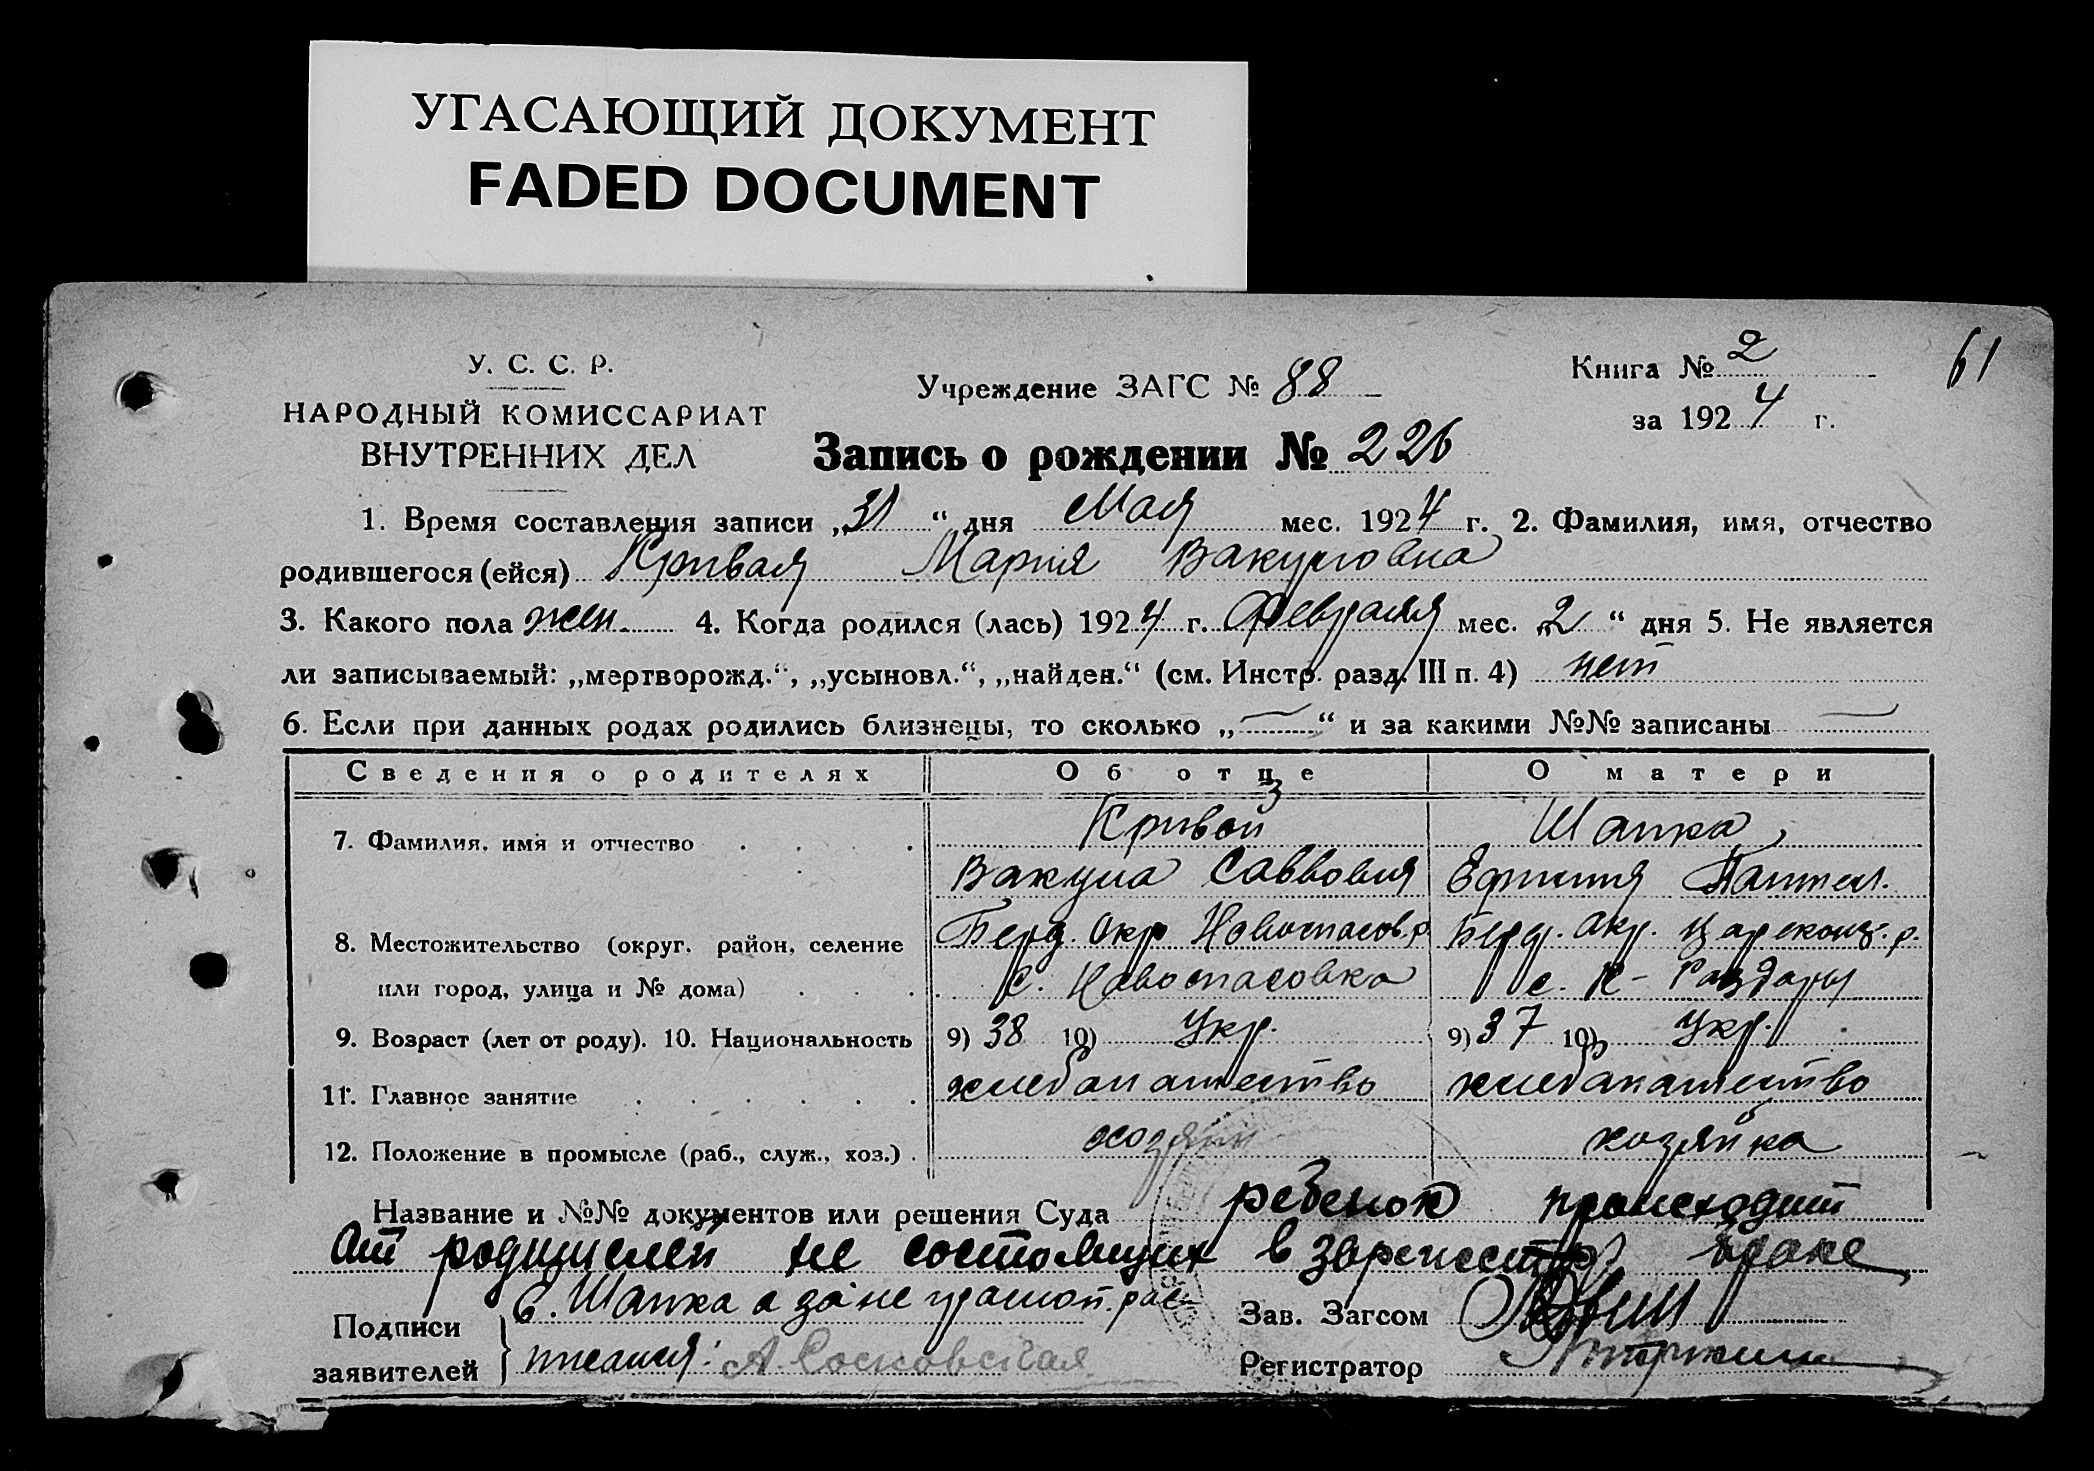 УГАСАЮЩИЙ ДОКУМЕНТ
FADED DOCUMENT
У. С. С. Р.
НАРОДНЫЙ КОМИССАРИАТ
ВНУТРЕННИХ ДЕЛ
Учреждение ЗАГС № 88
Книга № 2
61
за 1924 г.
Запись о рождении № 226
1. Время составления записи „31“ дня Мая мес. 1924 г. 2. Фамилия, имя, отчество
родившегося (ейся) Кривая Мария Вакуловна
3. Какого пола жен. 4. Когда родился (лась) 1924 г. Февраля мес. „2“ дня 5. Не является
ли записываемый: „мертворожд.“, „усыновл.“, „найден.“ (см. Инстр. разд. III п. 4) нет
6. Если при данных родах родились близнецы, то сколько „—“ и за какими №№ записаны —
Сведения о родителях Об отце О матери
3
7. Фамилия, имя и отчество Кривой Шапка
Вакула Саввовия Ефимия Пантел.
8. Местожительство (округ, район, селение Берд. Окр Новоспасов.р Берд. Окр. Цареконст. р.
или город, улица и № дома) С. Новоспасовка с. К- Раздоры
9. Возраст (лет от роду). 10. Национальность 9) 38 10) Укр. 9) 37 10) Укр.
11. Главное занятие хлебопашество хлебопашество
12. Положение в промысле (раб., служ., хоз.) хозяин хозяйка
Название и №№ документов или решения Суда ребенок происходит
от родителей не состоящих в зарегистр браке
Подписи Е. Шапка а за не грамот. рас-
заявителей писалася: А. Сосновская
Зав. Загсом
Регистратор